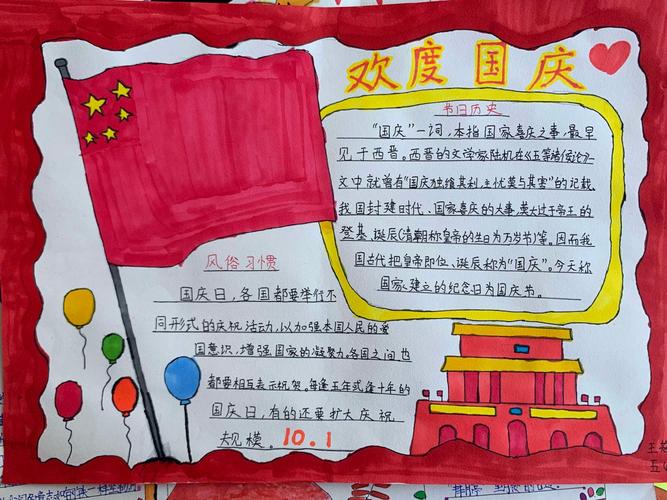 欢度国庆
节日历史
"国庆"一词,本指国家喜庆之事,最早
见于西晋。西晋的文学家陆机在《五等诸侯论》
文中就曾有"国庆独飨其利,主忧莫与其害"的记载、
我国封建时代、国家喜庆的大事,莫大过于帝王的
登基、诞辰(清朝称皇帝的生日为万岁节)等。因而我
国古代把皇帝即位、诞辰称为"国庆"。今天称
国家建立的纪念日为国庆节。
风俗习惯
国庆日,各国都要举行不
同形式的庆祝活动,以加强本国人民的爱
国意识,增强国家的凝聚力。各国之间也
都要相互表示祝贺。每逢五年或逢十年的
国庆日,有的还要扩大庆祝
规模。10.1